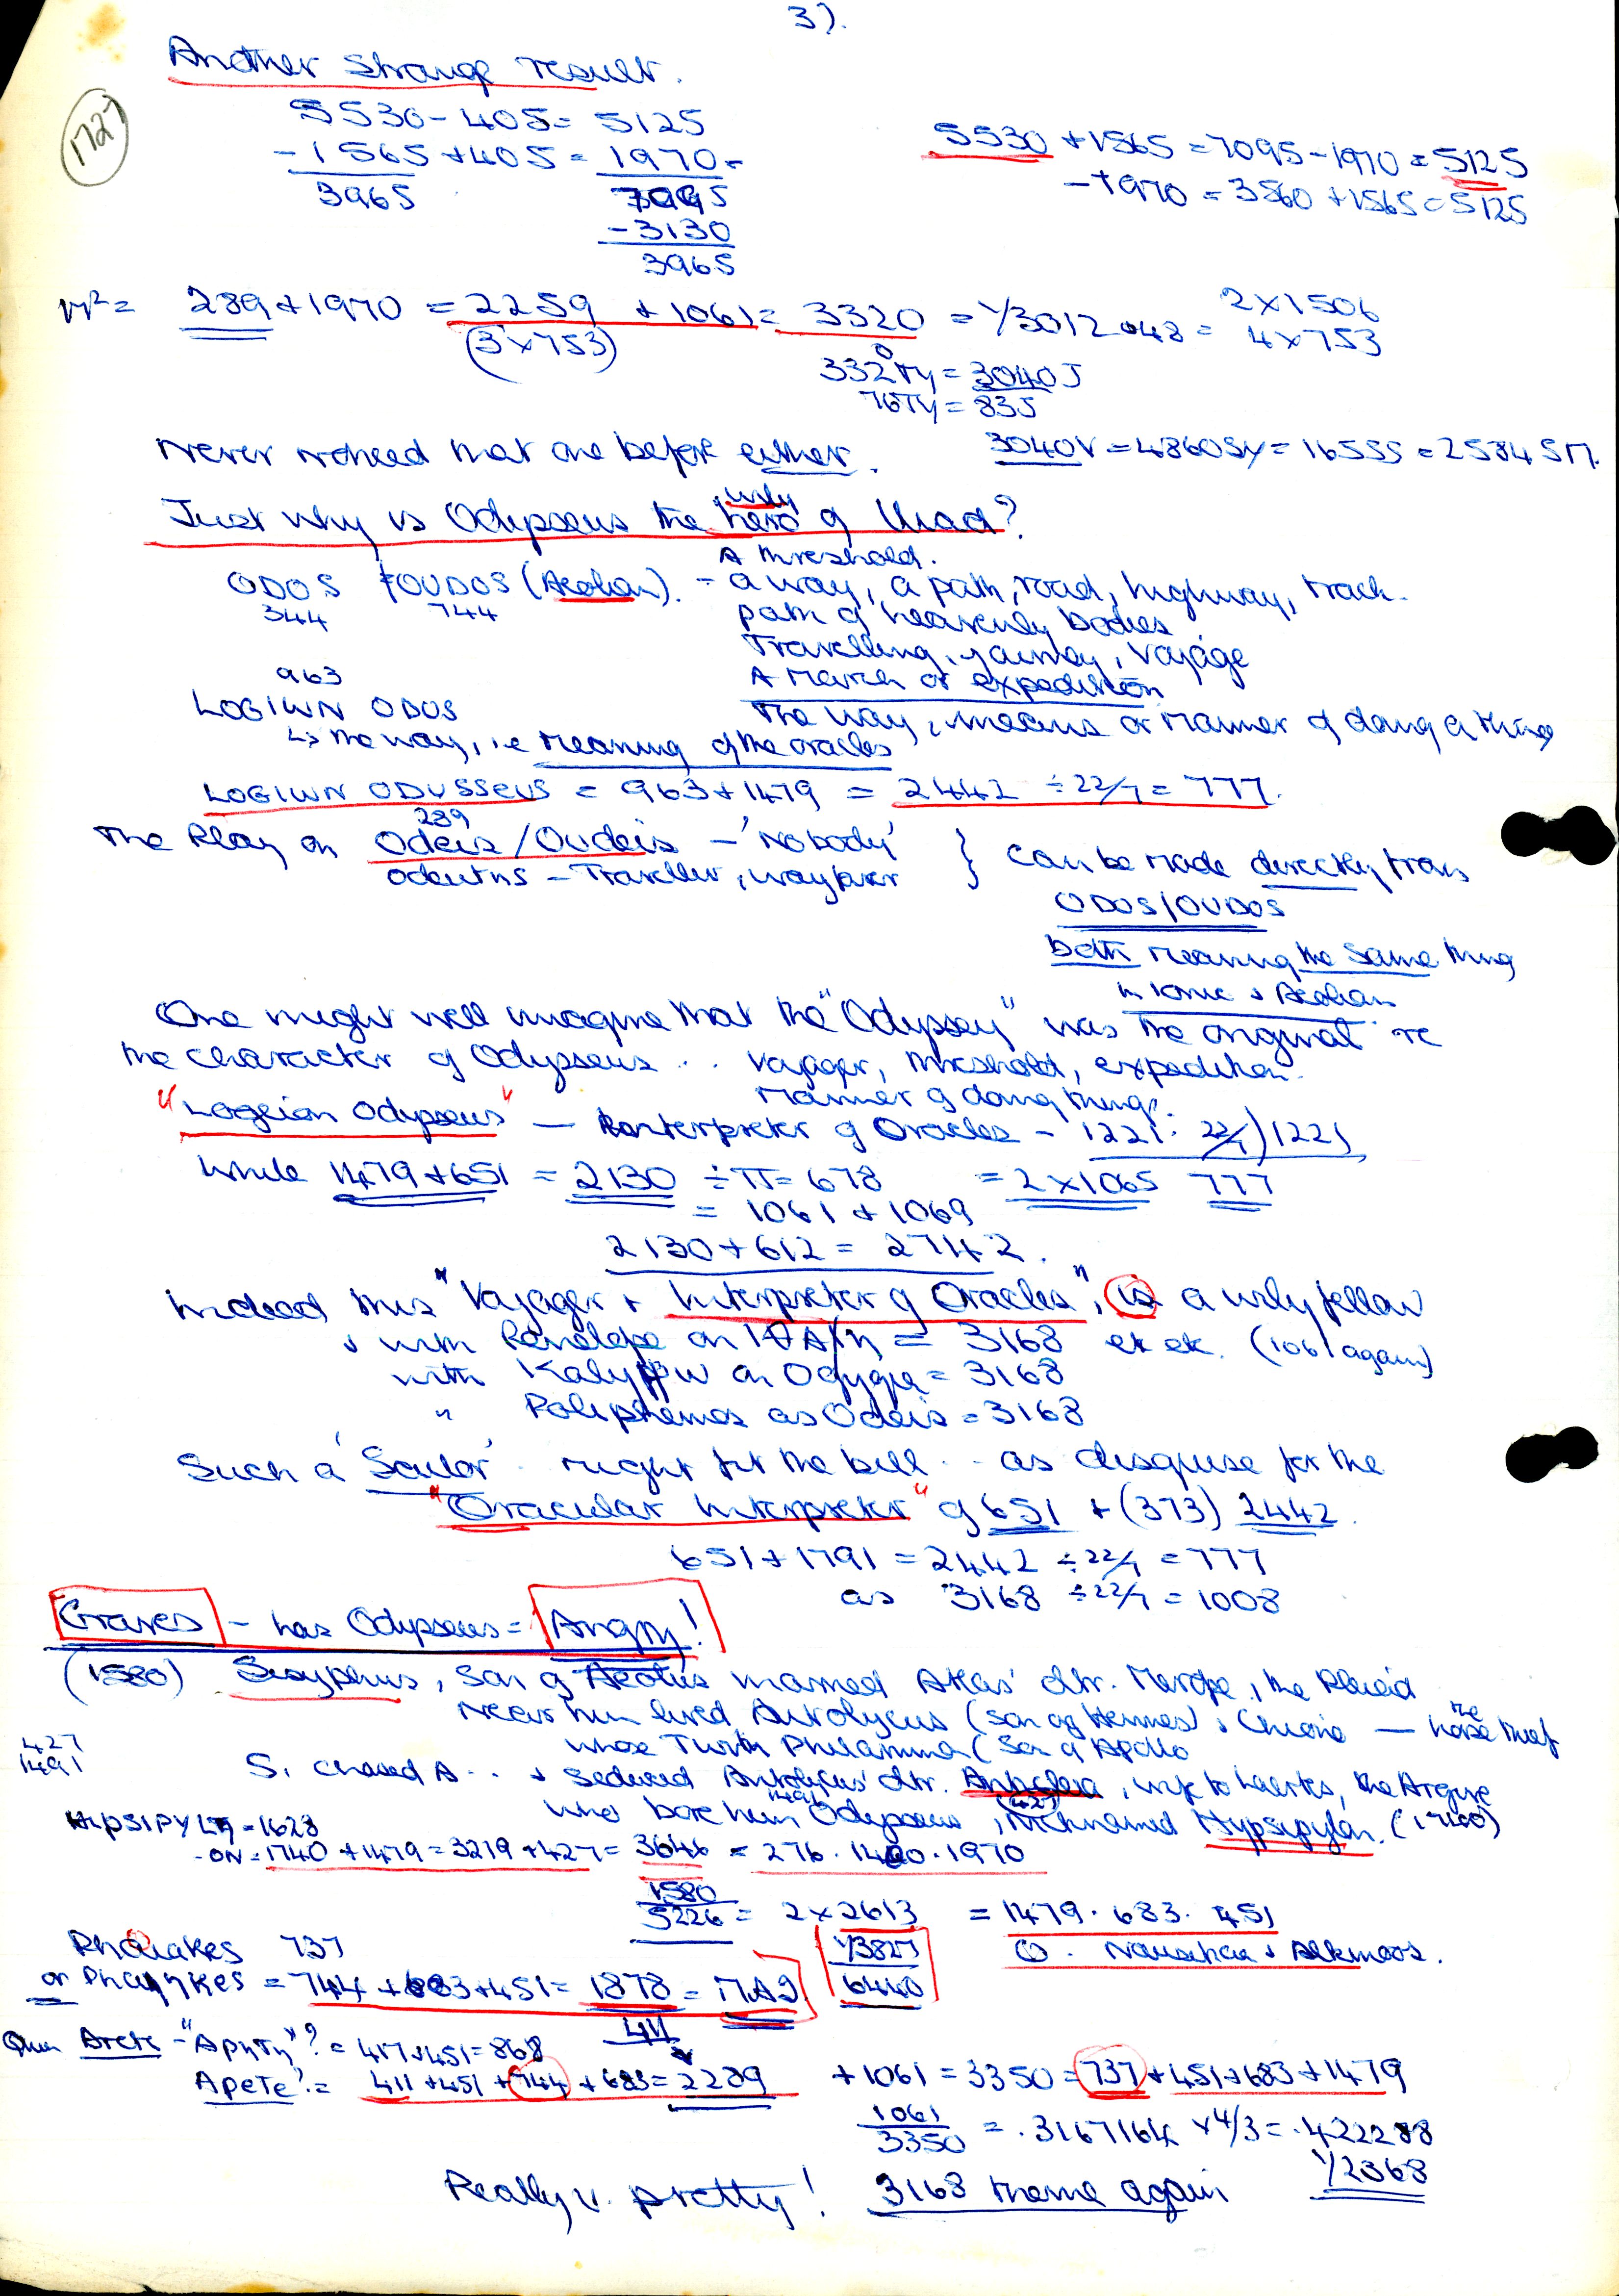 3).
1727
Another strange result.
5530 - 405 = 5125
- 1565 + 405 = 1970 -
3965 7095
- 3130
3965
5530 + 1565 = 7095 - 1970 = 5125
- 1970 = 3560 + 1565 = 5125
289 + 1970 = 2259 + 1061 = 3320 = 1/3012048 = 2 x 1506
(3 x 753) 4 x 753
3320 Ty = 3040 J
76 Ty = 83 J
Never noticed that one before either.
3040 V = 4860 Sy = 1655 S = 2584 SM.
Just why is Odysseus the wily hero of Iliad?
A threshold.
ODOS / OUDOS (Aeolian). - a way, a path, road, highway, track.
344 744
path of heavenly bodies
Travelling, journey, voyage
963
A march or expedition
LOGIWN ODOS
The way, means or manner of doing a thing
↳ the way, i.e meaning of the oracles
LOGIWN ODUSSEUS = 963 + 1479 = 2442 ÷ 22/7 = 777.
289
The Play on Odeis / Oudeis - 'Nobody' } can be made directly from
odeutns - Traveller, wayfarer
ODOS / OUDOS
both meaning the same thing
in Ionic & Aeolian
One might well imagine that the "Odyssey" was the original re
the character of Odysseus .. Voyager, threshold, expedition.
manner of doing things.
"Logeion Odysseus" - Interpreter of Oracles - 1221. 22/7)1221
while 1479 + 651 = 2130 ÷ π = 678 = 2 x 1065 777
= 1061 + 1069
2130 + 612 = 2742.
Indeed this "Voyager & Interpreter of Oracles", is a wily fellow
& with Penelope on = 3168 etc etc. (1061 again)
with Kalypsw on Ogygia = 3168
" Polyphemos as Odeis = 3168
Such a 'Sailor' might fit the bill .. as disguise for the
"Oracular Interpreter" of 651 + (373) 2442.
651 + 1791 = 2442 ÷ 22/7 = 777
as 3168 ÷ 22/7 = 1008
Graves - has Odysseus = Angry!
(1580) Sisyphus, son of Aeolus married Atlas' dtr. Merope, the Pleiad
Near him lived Autolycus (son of Hermes) & Chione - the horse thief
whose Twin Philammon (son of Apollo
427
1491
S. chased A .. & seduced Autolycus' dtr. Anticleia, wife to Laertes, the Argive
who bore him Odysseus, (427) Nicknamed Hypsipylon. (1740)
HUPSIPYLη = 1628
- ON = 1740 + 1479 = 3219 + 427 = 3646 = 276 . 1400 . 1970
1580
5226 = 2 x 2613 = 1479 . 683 . 451
O . Nausikaa & Alkinoos.
Phaiakes 737
or Phaiηkes = 744 + 683 + 451 = 1878 = 
1/3827
6440
411
Queen Arete - "Aρητη"? = 417 + 451 = 868
Aρete? = 411 + 451 + 744 + 683 = 2289 + 1061 = 3350 = 737 + 451 + 683 + 1479
1061
3350 = .3167164 x 4/3 = .422288
1/2368
Really v. pretty! 3168 theme again